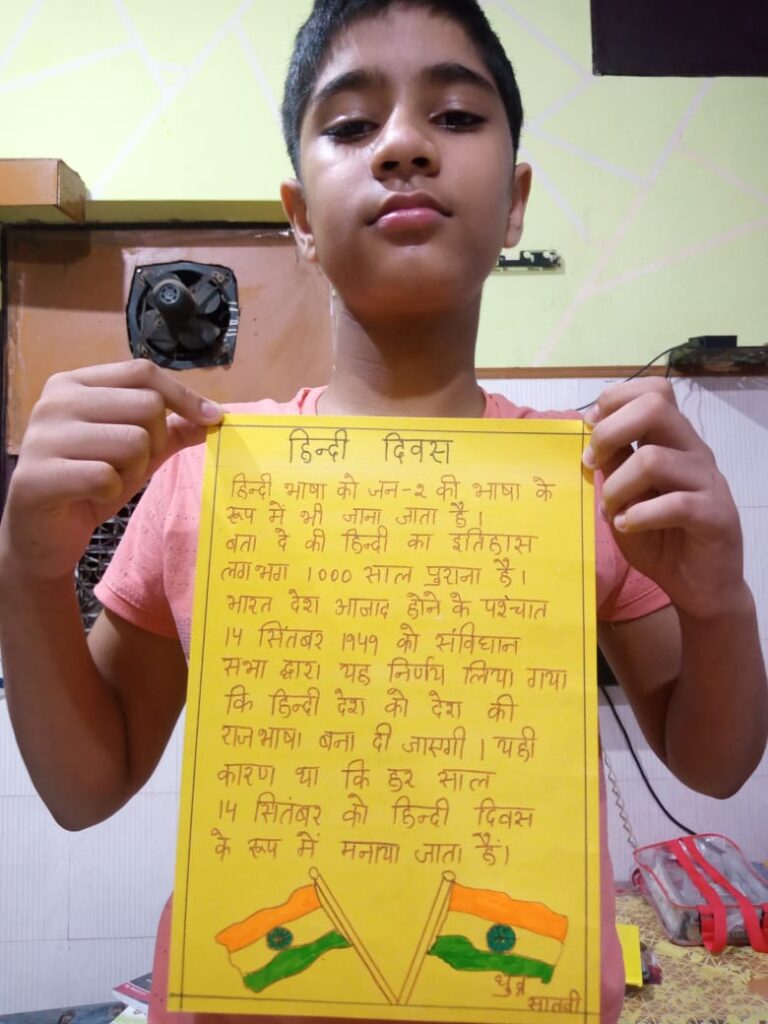 हिन्दी दिवस
हिन्दी भाषा को जन-२ की भाषा के
रूप में भी जाना जाता है।
बता दे की हिन्दी का इतिहास
लगभग 1000 साल पुराना है।
भारत देश आजाद होने के पश्चात
14 सिंतबर 1949 को संविधान
सभा द्वारा यह निर्णय लिया गया
कि हिन्दी देश को देश की
राजभाषा बना दी जाएगी। यही
कारण था कि हर साल
14 सितंबर को हिन्दी दिवस
के रूप में मनाया जाता हैं।
ध्रुव
सातवी